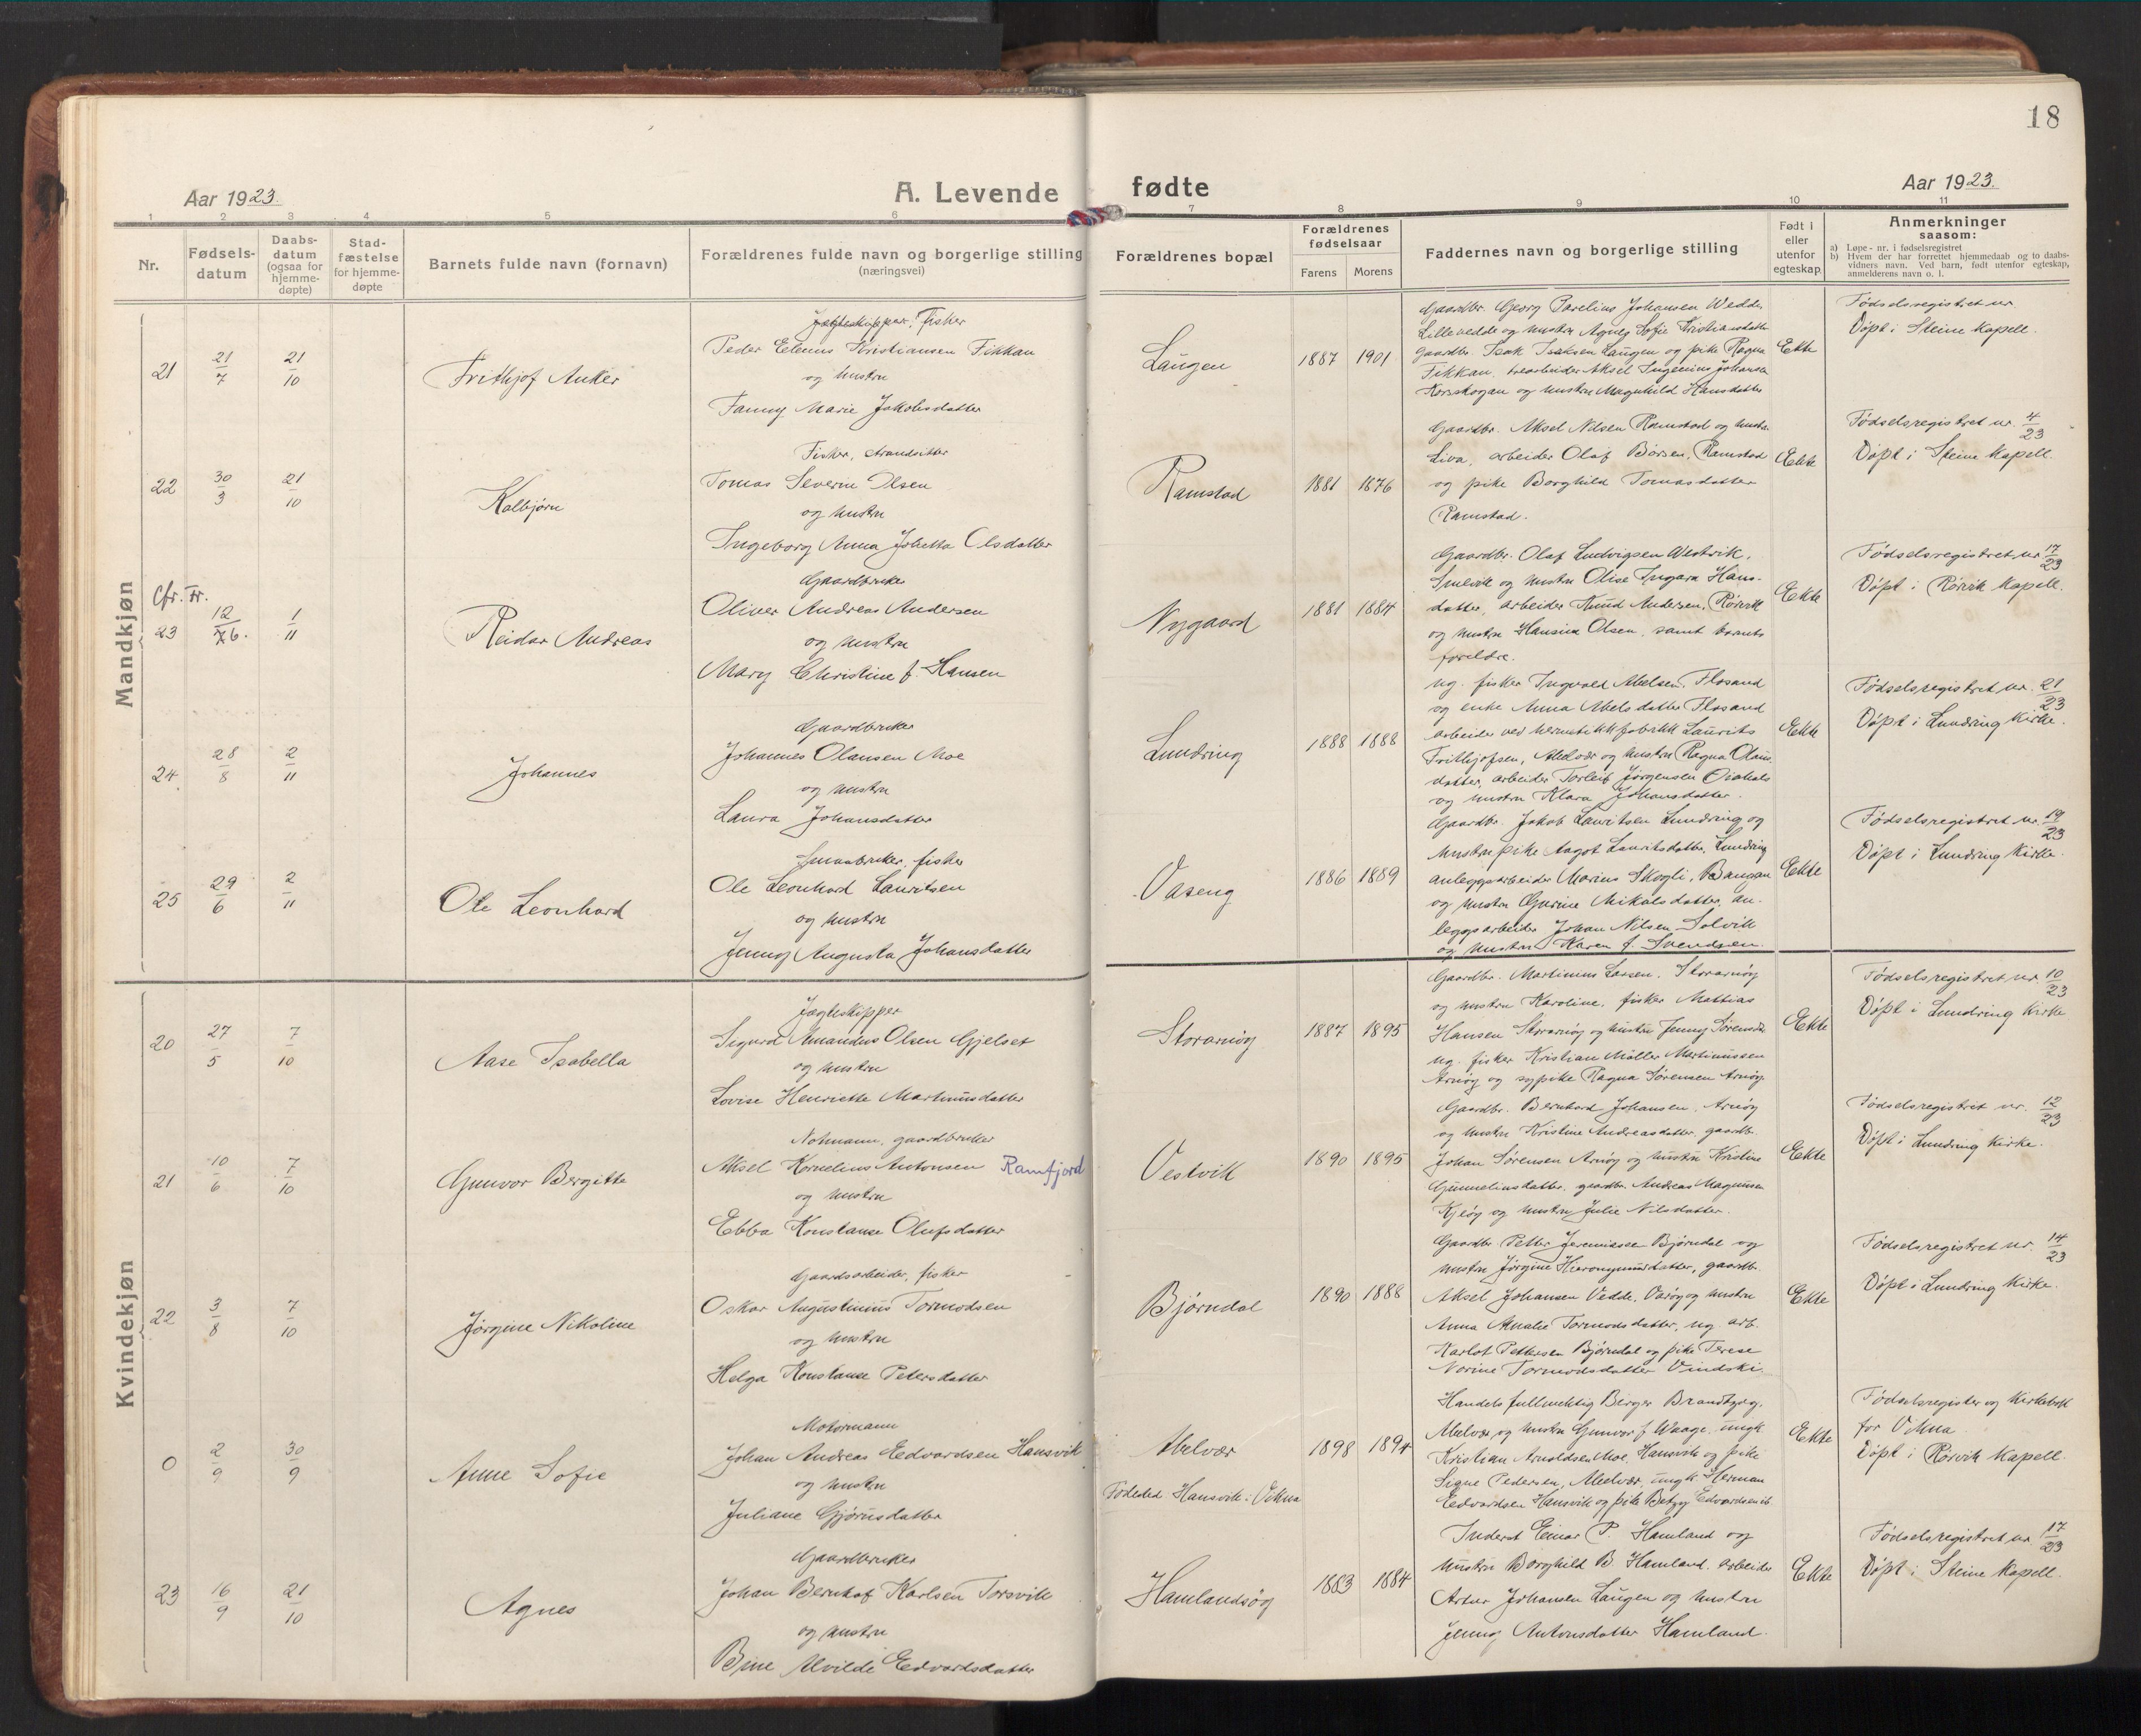 18
Aar 1923.
A. Levende
fødte
Aar 1923.
1
2
3
4
5
6
7
8
9
10
11
Nr.
Fødsels-
datum
Daabs-
datum
(ogsaa for
hjemme-
døpte)
Stad-
fæstelse
for hjemme-
døpte
Barnets fulde navn (fornavn)
Forældrenes fulde navn og borgerlige stilling
(næringsvei)
Forældrenes bopæl
Forældrenes
fødselsaar
Farens
Morens
Faddernes navn og borgerlige stilling
Født i
eller
utenfor
egteskap.
Anmerkninger
saasom:
a) Løpe-nr. i fødselsregistret
b) Hvem der har forrettet hjemmedaab og to daabs-
vidners navn. Ved barn, født utenfor egteskap,
anmelderens navn o. l.
Mandkjøn
21
21/7
21/10
Frithjof Anker
Jægteskipper, Fisker
Peder Elenus Kristiansen Fikkan
og hustru
Fanny Marie Jakobsdatter
Laugen
1887
1901
Gaardbr. Georg Parelius Johansen Wedde,
Lillevedde og hustru Agnes Sofie Kristiansdatter
gaardbr. Isak Isaksen Laugen og pike Ragna
Fikkan, trearbeider Aksel Ingenius Johansen
Horskogan og hustru Magnhild Hansdatter
Ekte
Fødselsregistret nr.
Døpt i Steine Kapell.
22
30/3
21/10
Kolbjørn
Fisker, strandsitter
Tomas Severin Olsen
og hustru
Ingeborg Anna Johetta Olsdatter
Ramstad
1881
1876
Gaardbr. Aksel Nilsen Ramstad og hustru
Liva, arbeider Olaf Børsen, Ramstad
og pike Borghild Tomasdatter
Ramstad.
Ekte
Fødselsregistret nr. 4/23
Døpt i Steine Kapell.
Cfr. Fr.
23
12/76.
1/11
Reidar Andreas
Gaardbruker
Oliver Andreas Andersen
og hustru
Mary Christine f. Hansen
Nygaard
1881
1884
Gaardbr. Olaf Ludvigsen Westvik,
og hustru Olise Ingara Hans-
datter, arbeider Knud Andersen, Rørvik
og hustru Hansina Olsen, samt barnets
foreldre.
Ekte
Fødselsregistret nr. 17/23
Døpt i Rørvik Kapell.
24
28/8
2/11
Johannes
Gaardbruker
Johannes Olausen Moe
og hustru
Laura Johansdatter
Lundring
1888
1888
ug. fisker Ingvald Abelsen, Flosand
og enke Anna Abelsdatter Flosand
arbeider ved hermetikkfabrikk Laurits
Frithjofsen, Abelvær og hustru Ragna Olaus-
datter, arbeider Torleif Jørgensen
og hustru Klara Johansdatter.
Ekte
Fødselsregistret nr. 21/23
Døpt i Lundring Kirke.
25
29/6
2/11
Ole Leonhard
Smaabruker, fisker
Ole Leonhard Lauritsen
og hustru
Jenny Augusta Johansdatter
Vaseng
1886
1889
Gaardbr. Jakob Lauritsen Lundring og
hustru pike Aagot Lauritsdatter, Lundring
anleggsarbeider Marius Skogli, Baugan
og hustru Gurine Mikalsdatter, an-
leggsarbeider Johan Nilsen Solvik
og hustru Karen f. Svendsen.
Ekte
Fødselsregistret nr. 19/23
Døpt i Lundring Kirke.
Kvindekjøn
20
27/5
7/10
Aase Isabella
Jægteskipper
Sigurd Amandus Olsen Gjelset
og hustru
Lovise Henriette Martinusdatter
Storarnøy
1887
1895
Gaardbr. Martinus Lassen, Storarnøy
og hustru Karoline, fisker Mattias
Hansen Storarnøy og hustru Jenny Sørensd.
ug. fisker Kristian Møller Martinussen
Arnøy og sypike Ragna Sørensen Arnøy.
Ekte
Fødselsregistret nr. 10/23
Døpt i Lundring Kirke
21
10/6
7/10
Gunvor Bergitte
Notmann, gaardbruker
Aksel Kornelius Antonsen Ramfjord
og hustru
Ebba Konstanse Olufsdatter
Vestvik
1890
1895
Gaardbr. Bernhard Johansen, Arnøy
og hustru Kristine Andreasdatter, gaardbr.
Johan Sørensen Arnøy og hustru Kristine
Gunneliusdatter, gaardbr. Andreas Magnussen
Kjeøy og hustru Julie Nilsdatter.
Ekte
Fødselsregistret nr. 12/23
Døpt i Lundring Kirke.
22
3/8
7/10
Jørgine Nikoline
Gaardsarbeider, fisker
Oskar Augustinius Tormodsen
og hustru
Helga Konstanse Petersdatter
Bjørndal
1890
1888
Gaardbr. Petter Jeremiassen Bjørndal og
hustru Jørgine Hieronymusdatter, gaardbr.
Aksel Johansen Vedde, Varøy og hustru
Anna Amalie Tormodsdatter, ug. arb.
Karlot Pettersen Bjørndal og pike Terese
Norine Tormodsdatter Vindski
Ekte
Fødselsregistret nr. 14/23
Døpt i Lundring Kirke.
0
2/9
30/9
Anne Sofie
Motormann
Johan Andreas Edvardsen Hansvik
og hustru
Juliane Gjørusdatter
Abelvær
Fødested Hansvik i Vikna
1898
1894
Handelsfullmektig Birger Brandtzæg,
Abelvær og hustru Gunvor f. Waage, ungk.
Kristian Arnoldsen Moe, Hansvik og pike
Signe Pedersen, Abelvær, ungk. Herman
Edvardsen Hansvik og pike Betzy Edvardsen ib.
Ekte
Fødselsregister og Kirkebok
for Vikna
Døpt i Rørvik Kapell.
23
16/9
21/10
Agnes
Gaardbruker
Johan Bernhof Karlsen Torsvik
og hustru
Bine Alvilde Edvardsdatter
Hamlandsøy
1883
1884
Inderst Einar P. Hamland og
hustru Borghild B. Hamland, arbeider
Artur Johansen Laugen og hustru
Jenny Antonsdatter Hamland.
Ekte
Fødselsregistret nr. 17/23
Døpt i Steine Kapell.